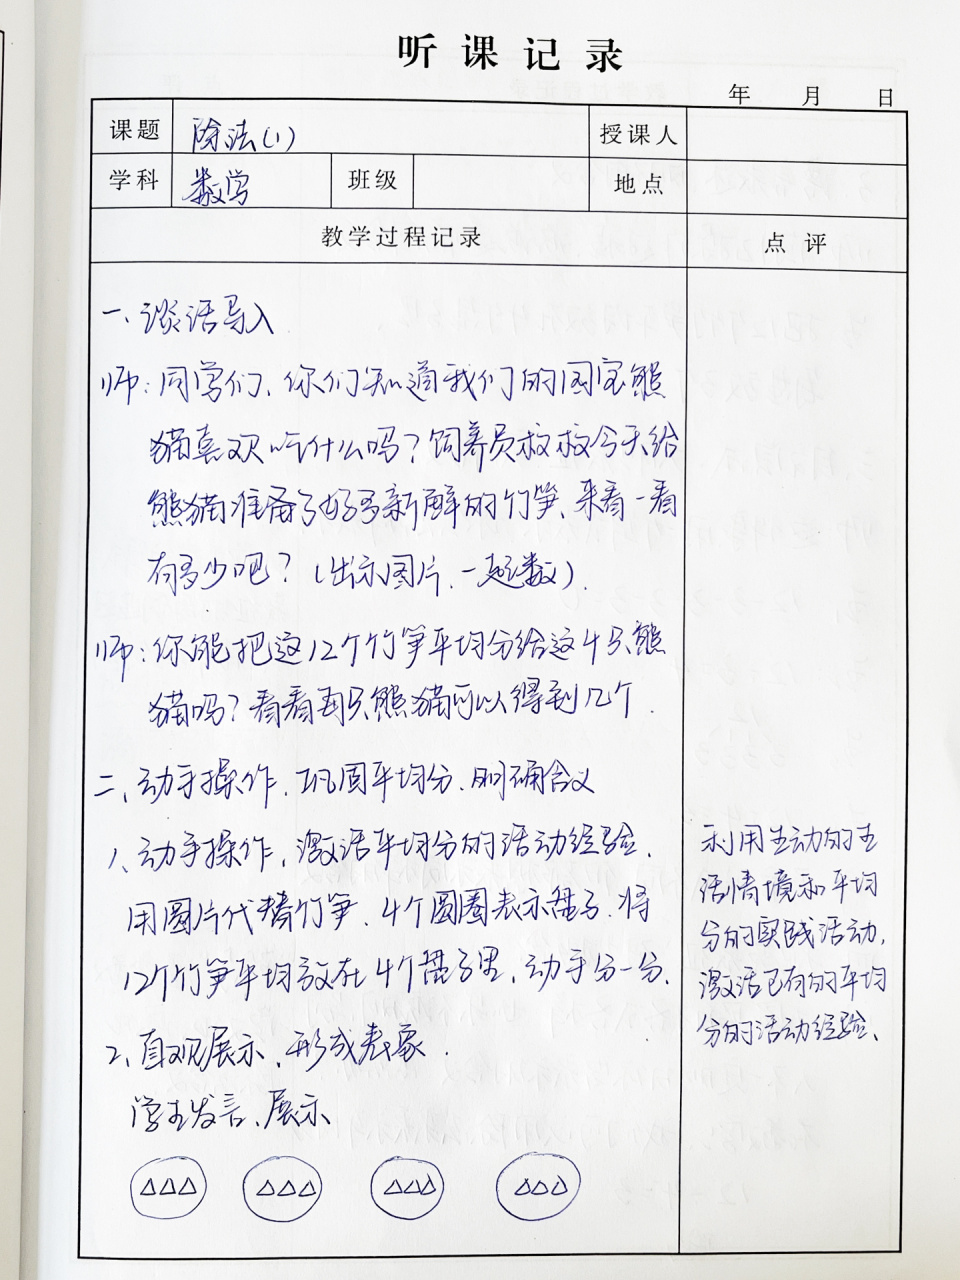 听课记录
年 月 日
课题 除法(1) 授课人
学科 数学 班级 地点
教学过程记录 点评
一、谈话导入
师：同学们，你们知道我们的国宝熊
猫喜欢吃什么吗？饲养员叔叔今天给
熊猫准备了好多新鲜的竹笋，来看一看
有多少吧？（出示图片，一起数）
师：你能把这12个竹笋平均分给这4只熊
猫吗？看看每只熊猫可以得到几个．
二、动手操作，巩固平均分，明确含义
1、动手操作，激活平均分的活动经验．
用圆片代替竹笋，4个圆圈表示盘子，将
12个竹笋平均放在4个盘子里，动手分一分．
2、直观展示，形成表象．
学生发言、展示
利用生动的生
活情境和平均
分的实践活动，
激活已有的平均
分的活动经验、